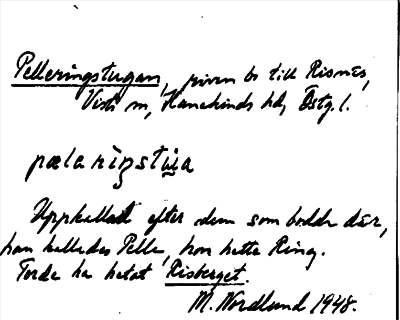 Pelleringstugan, riven bs till Risnes,
Visti sn, Hanekinds hd, Östg. l.
pælarìŋstɯ̀a
Uppkallad efter dem som bodde där,
han kallades Pelle, hon hette Ring.
Torde ha hetat Risberget.
M. Nordlund 1948.